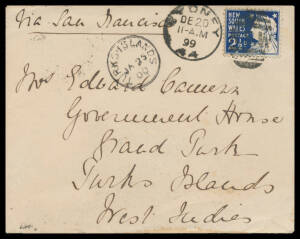 Via San Francisco
SYDNEY
DE 20
11-A.M
99
44
NEW SOUTH WALES
POSTAGE
2½
TURKS ISLANDS
00
Mrs Edward Cameron
Government House
Grand Turk
Turks Islands
West Indies